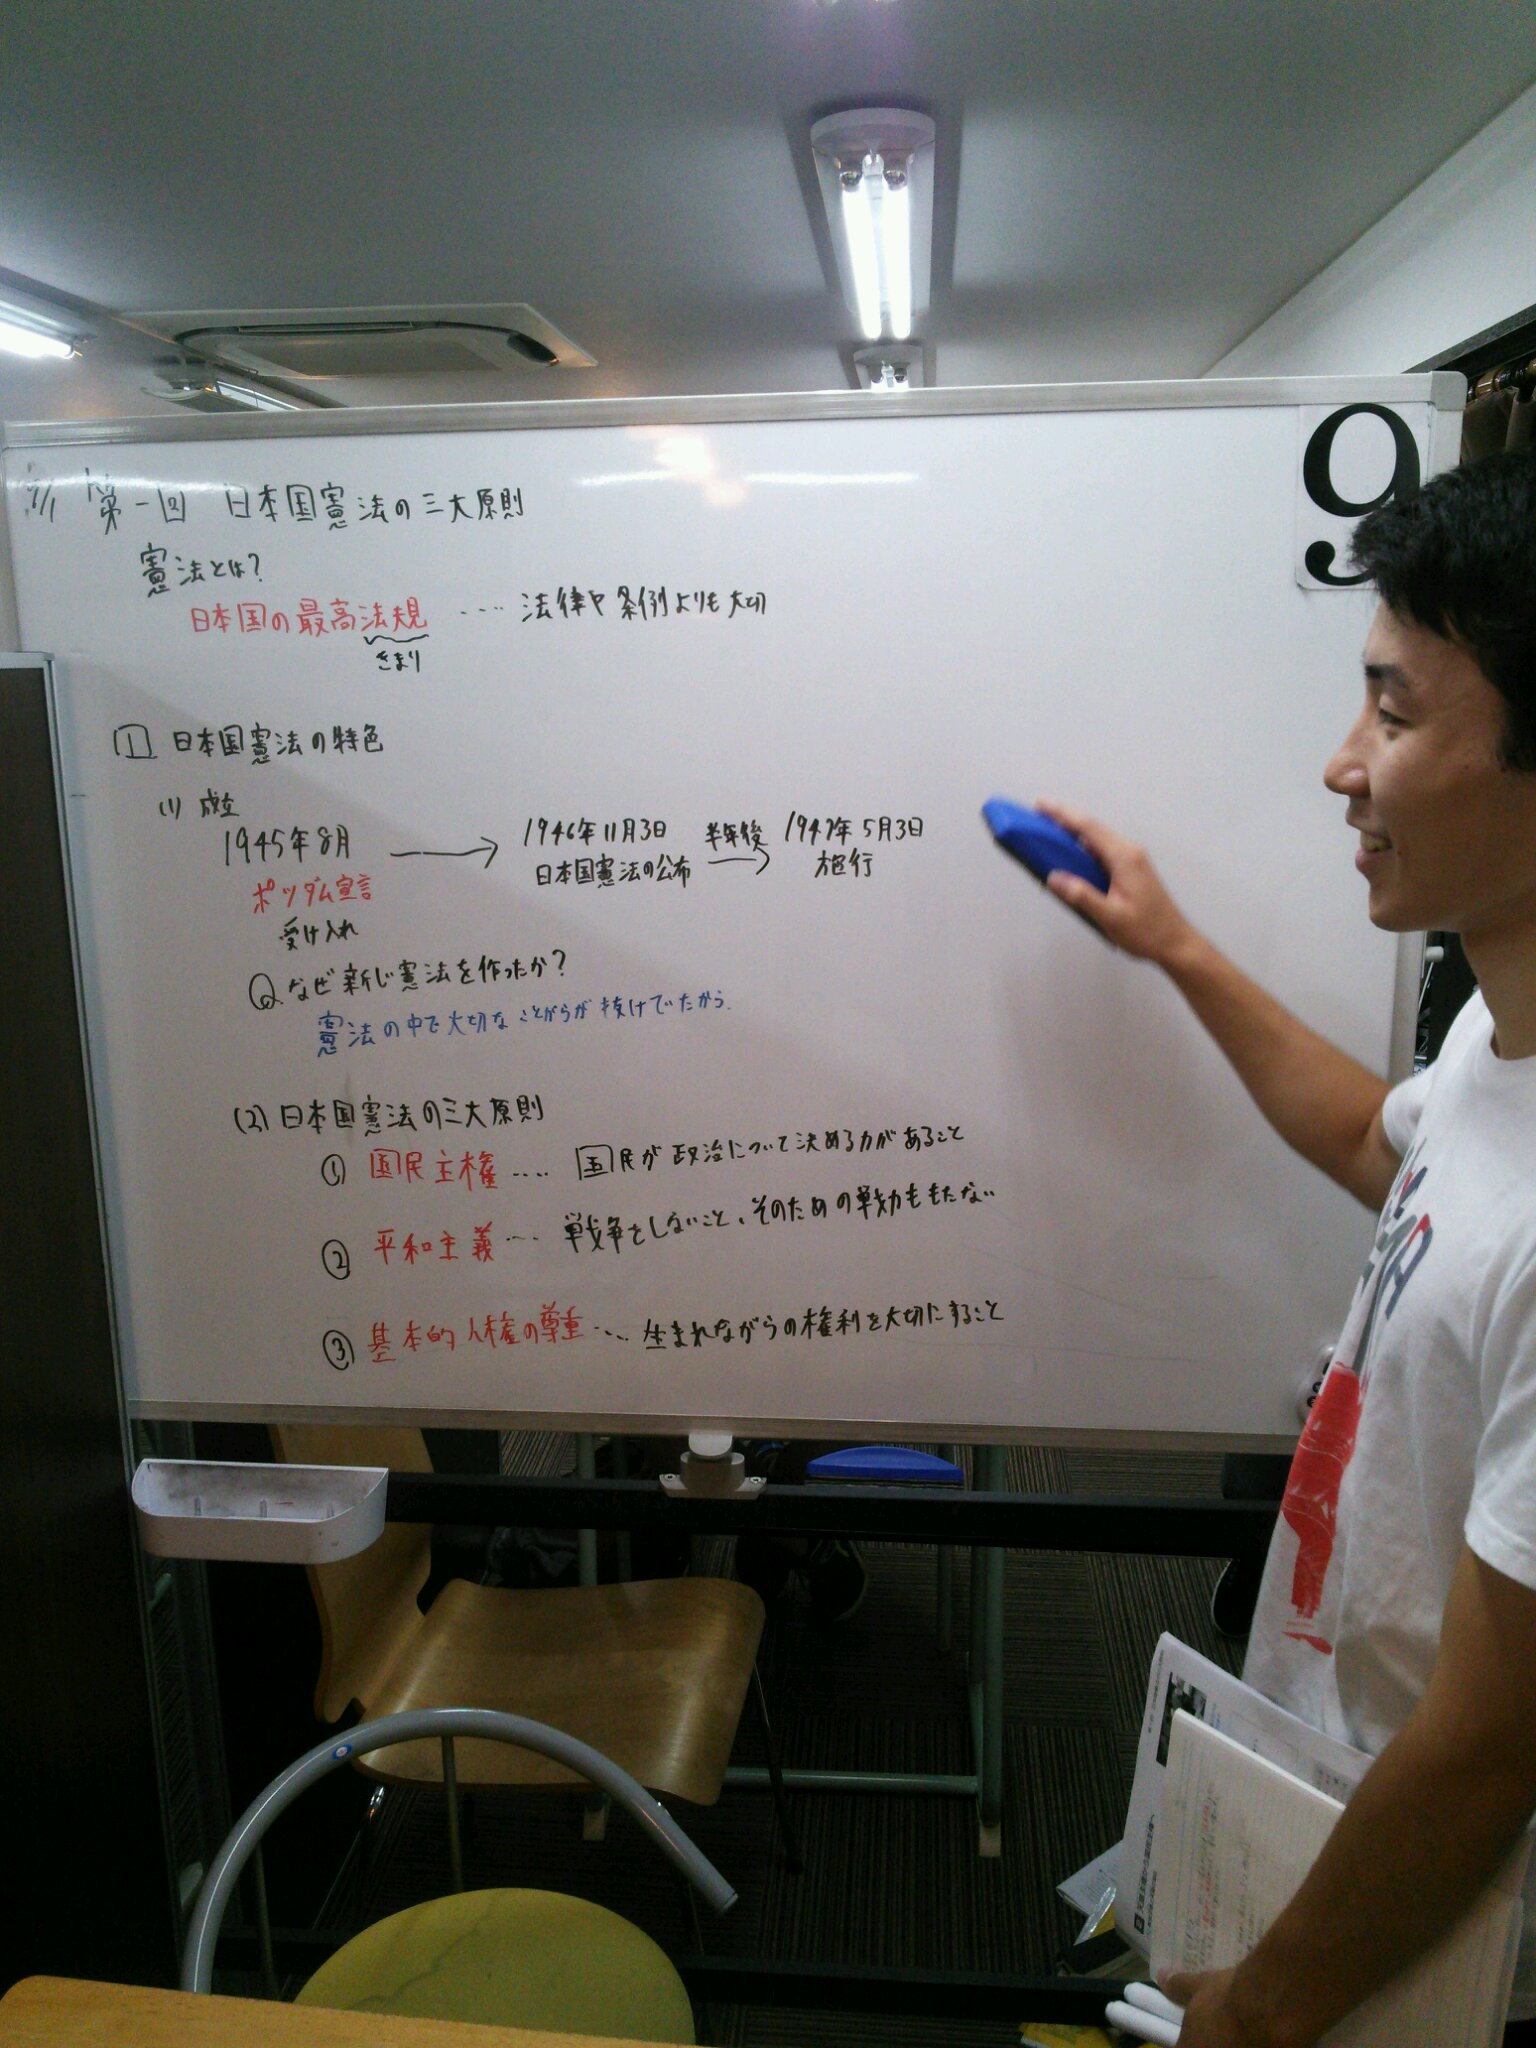 9
9/1 第一回 日本国憲法の三大原則
憲法とは?
日本国の最高法規 ···· 法律や条例よりも大切
きまり
1 日本国憲法の特色
(1) 成立
1945年8月 → 1946年11月3日 半年後 → 1947年5月3日
ポツダム宣言 日本国憲法の公布 施行
受け入れ
Q なぜ新しい憲法を作ったか?
憲法の中で大切なことがらが抜けてたから.
(2) 日本国憲法の三大原則
① 国民主権 ···· 国民が政治について決める力があること
② 平和主義 ···· 戦争をしないこと、そのための戦力ももたない
③ 基本的人権の尊重 ···· 生まれながらの権利を大切にすること